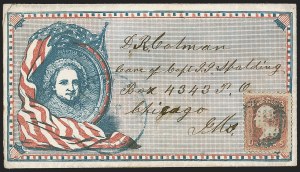 D. R. Colman
Care of Capt. J. J. Spalding
Box 4343 P. O.
Chicago
Ills.